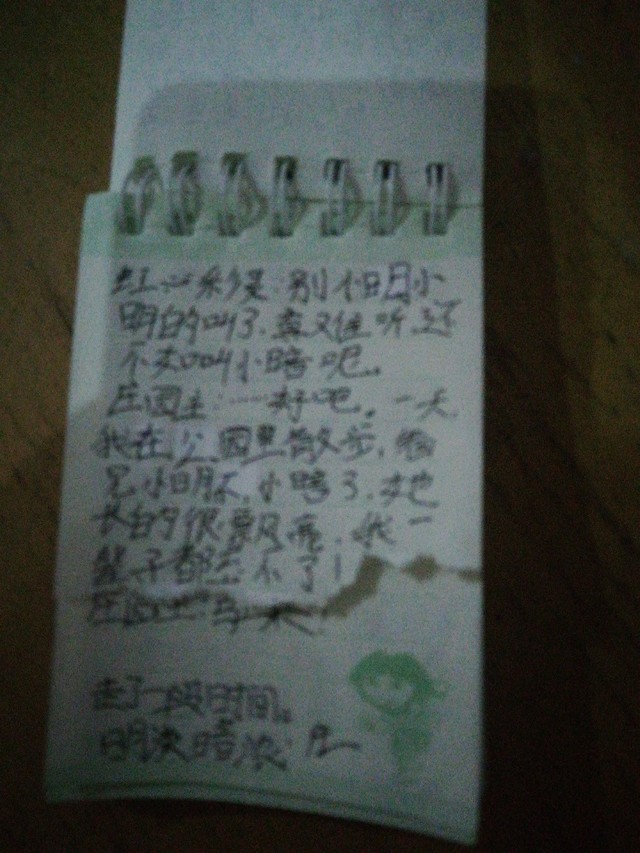 红心彩美:别小明小
明的叫了,真难听,还
不如叫小暗呢。
庄园主:……好吧。一天
我在公园里散步,看
见小明不,小暗了,她
长的很漂亮,我一
辈子都忘不了!
庄园主
走了一段时间。
明决暗浓: